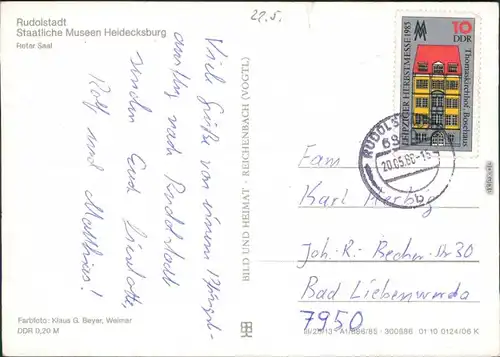 Rudolstadt
Staatliche Museen Heidecksburg
Roter Saal
22.5.
Viele Grüße von einem Pfingst-
ausflug nach Rudolstadt
senden Euch Lieselotte,
Rolf und Matthias!
Farbfoto: Klaus G. Beyer, Weimar
DDR 0,20 M
BILD UND HEIMAT · REICHENBACH (VOGTL)
10
DDR
LEIPZIGER HERBSTMESSE 1983
Thomaskirchhof, Bosehaus
RUDOLST
20.05.86-16
b
Fam
Karl Herbig
Joh.-R.-Becher-Str 30
Bad Liebenwerda
7950
A1/886/85 · 300886 01 10 0124/06 K